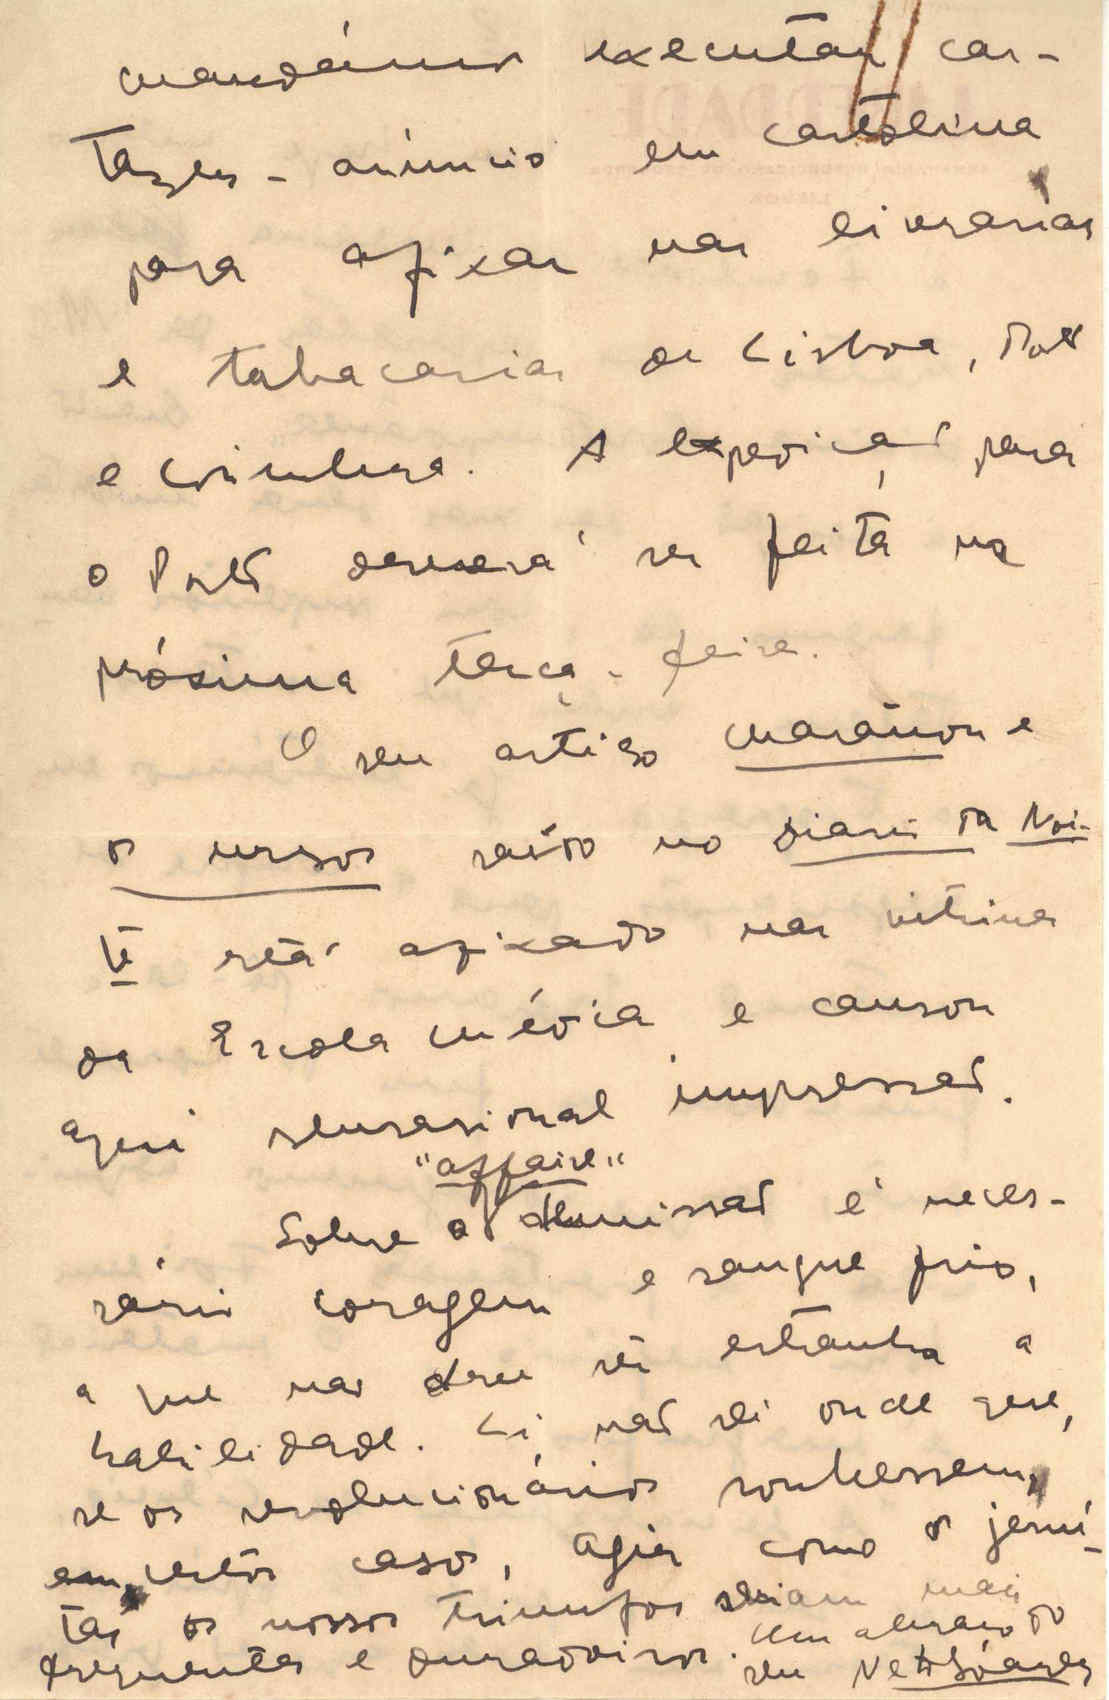 mandámos executar car-
tazes-anúncio em cartolina
para afixar nas livrarias
e tabacarias de Lisboa, Porto
e Coimbra. A expedição para
o Porto deverá ser feita na
próxima terça-feira.
O seu artigo Marañon e
os ursos saído no Diario da Noi-
te está afixado nas vitrinas
da Escola Médica e causou
aqui sensasional impressão.
"affaire"
Sobre o demissão é neces-
sário coragem e sangue frio,
a que não deve ser estranha a
habilidade. Li, não sei onde que,
se os revolucionários soubessem,
em certos casos, agir como os jesui-
tas os nossos triunfos seriam mais
frequentes e duradoiros.
Um abraço do
seu Neto Soares